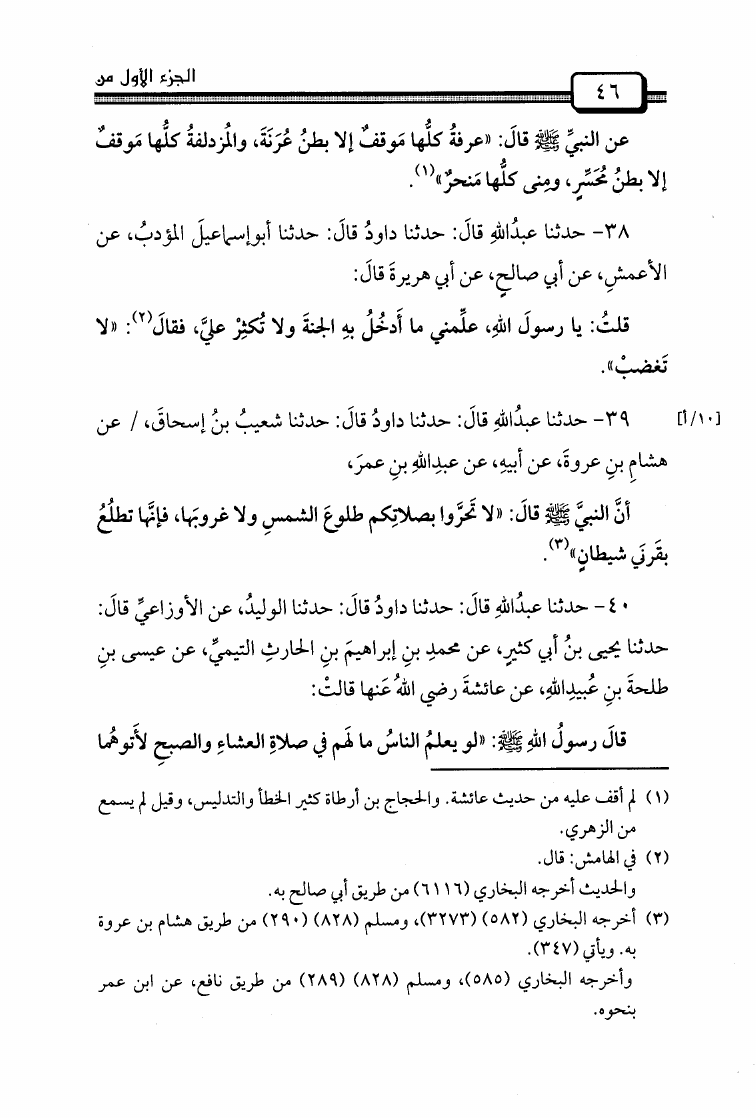 الجزء الأول من
٤٦
عن النبيِّ ﷺ قالَ: «عرفةُ كلُّها مَوقفٌ إلا بطنُ عُرَنَةَ، والمُزدلفةُ كلُّها مَوقفٌ
إلا بطنُ مُحَسِّرٍ، ومِنى كلُّها مَنحرٌ»(١).
٣٨- حدثنا عبدُاللهِ قالَ: حدثنا داودُ قالَ: حدثنا أبوإسماعيلَ المؤدبُ، عن
الأعمشِ، عن أبي صالحٍ، عن أبي هريرةَ قالَ:
قلتُ: يا رسولَ اللهِ، علِّمني ما أَدخُلُ بهِ الجنةَ ولا تُكثِرْ عليَّ، فقالَ(٢): «لا
تَغضبْ».
٣٩- حدثنا عبدُاللهِ قالَ: حدثنا داودُ قالَ: حدثنا شعيبُ بنُ إسحاقَ، / عن
[١٠/أ]
هشامِ بنِ عروةَ، عن أبيهِ، عن عبدِاللهِ بنِ عمرَ،
أنَّ النبيَّ ﷺ قالَ: «لا تَحرَّوا بصلاتِكم طلوعَ الشمسِ ولا غروبَها، فإنَّها تطلُعُ
بقَرنَي شيطانٍ»(٣).
٤٠- حدثنا عبدُاللهِ قالَ: حدثنا داودُ قالَ: حدثنا الوليدُ، عن الأوزاعيِّ قالَ:
حدثنا يحيى بنُ أبي كثيرٍ، عن محمدِ بنِ إبراهيمَ بنِ الحارثِ التيميِّ، عن عيسى بنِ
طلحةَ بنِ عُبيدِاللهِ، عن عائشةَ رضي اللهُ عَنها قالتْ:
قالَ رسولُ اللهِ ﷺ: «لو يعلمُ الناسُ ما لَهم في صلاةِ العشاءِ والصبحِ لأَتوهُما
(١) لم أقف عليه من حديث عائشة. والحجاج بن أرطاة كثير الخطأ والتدليس، وقيل لم يسمع
من الزهري.
(٢) في الهامش: قال.
والحديث أخرجه البخاري (٦١١٦) من طريق أبي صالح به.
(٣) أخرجه البخاري (٥٨٢) (٣٢٧٣)، ومسلم (٨٢٨) (٢٩٠) من طريق هشام بن عروة
به. ويأتي (٣٤٧).
وأخرجه البخاري (٥٨٥)، ومسلم (٨٢٨) (٢٨٩) من طريق نافع، عن ابن عمر
بنحوه.